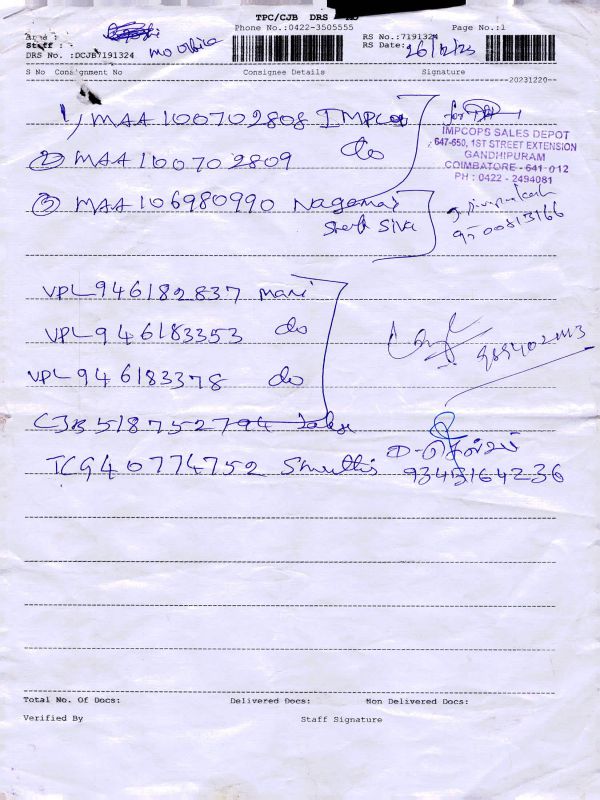 TPC/CJB DRS
Area :
Phone No.:0422-3505555
Page No.:1
Staff :
RS No.:7191324
DRS No. :DCJB7191324
RS Date: 26/12/23
S No Consignment No Consignee Details Signature
20231220
1) MAA 100702808 IMPCOP
for
IMPCOPS SALES DEPOT
647-650, 1ST STREET EXTENSION
GANDHIPURAM
COIMBATORE - 641 012
PH : 0422 - 2494081
2) MAA 100702809 do
3) MAA 106980990 Nagamai
Siva
9500813166
VPL 946182837 Mani
VPL 946183353 do
VPL 946183378 do
CJB 518752794
TCG 40774752 Shruthi
9345164236
Total No. Of Docs: Delivered Docs: Non Delivered Docs:
Verified By Staff Signature